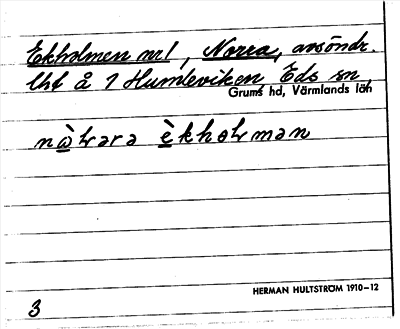 Ekholmen nr 1, Norra, avsöndr.
lht å 1 Humleviken Eds sn,
Grums hd, Värmlands län
nɷ̀ꞎərə èkhoꞎmən
HERMAN HULTSTRÖM 1910–12
3